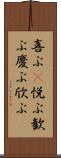 喜ぶ 悦ぶ歓
ぶ慶ぶ欣ぶ